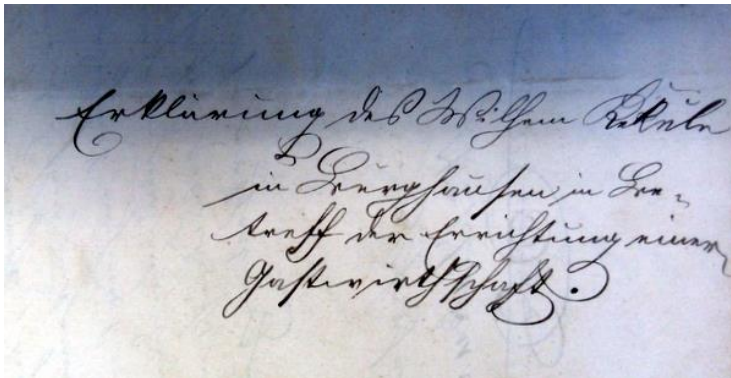 Erklärung des Wilhem Kekule
in Berghausen in Be-
treff der Errichtung einer
Gastwirthschaft.